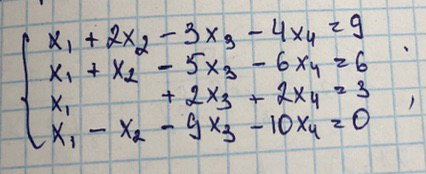 x₁ + 2x₂ - 3x₃ - 4x₄ = 9
x₁ + x₂ - 5x₃ - 6x₄ = 6
x₁ + 2x₃ + 2x₄ = 3
x₁ - x₂ - 9x₃ - 10x₄ = 0 ,